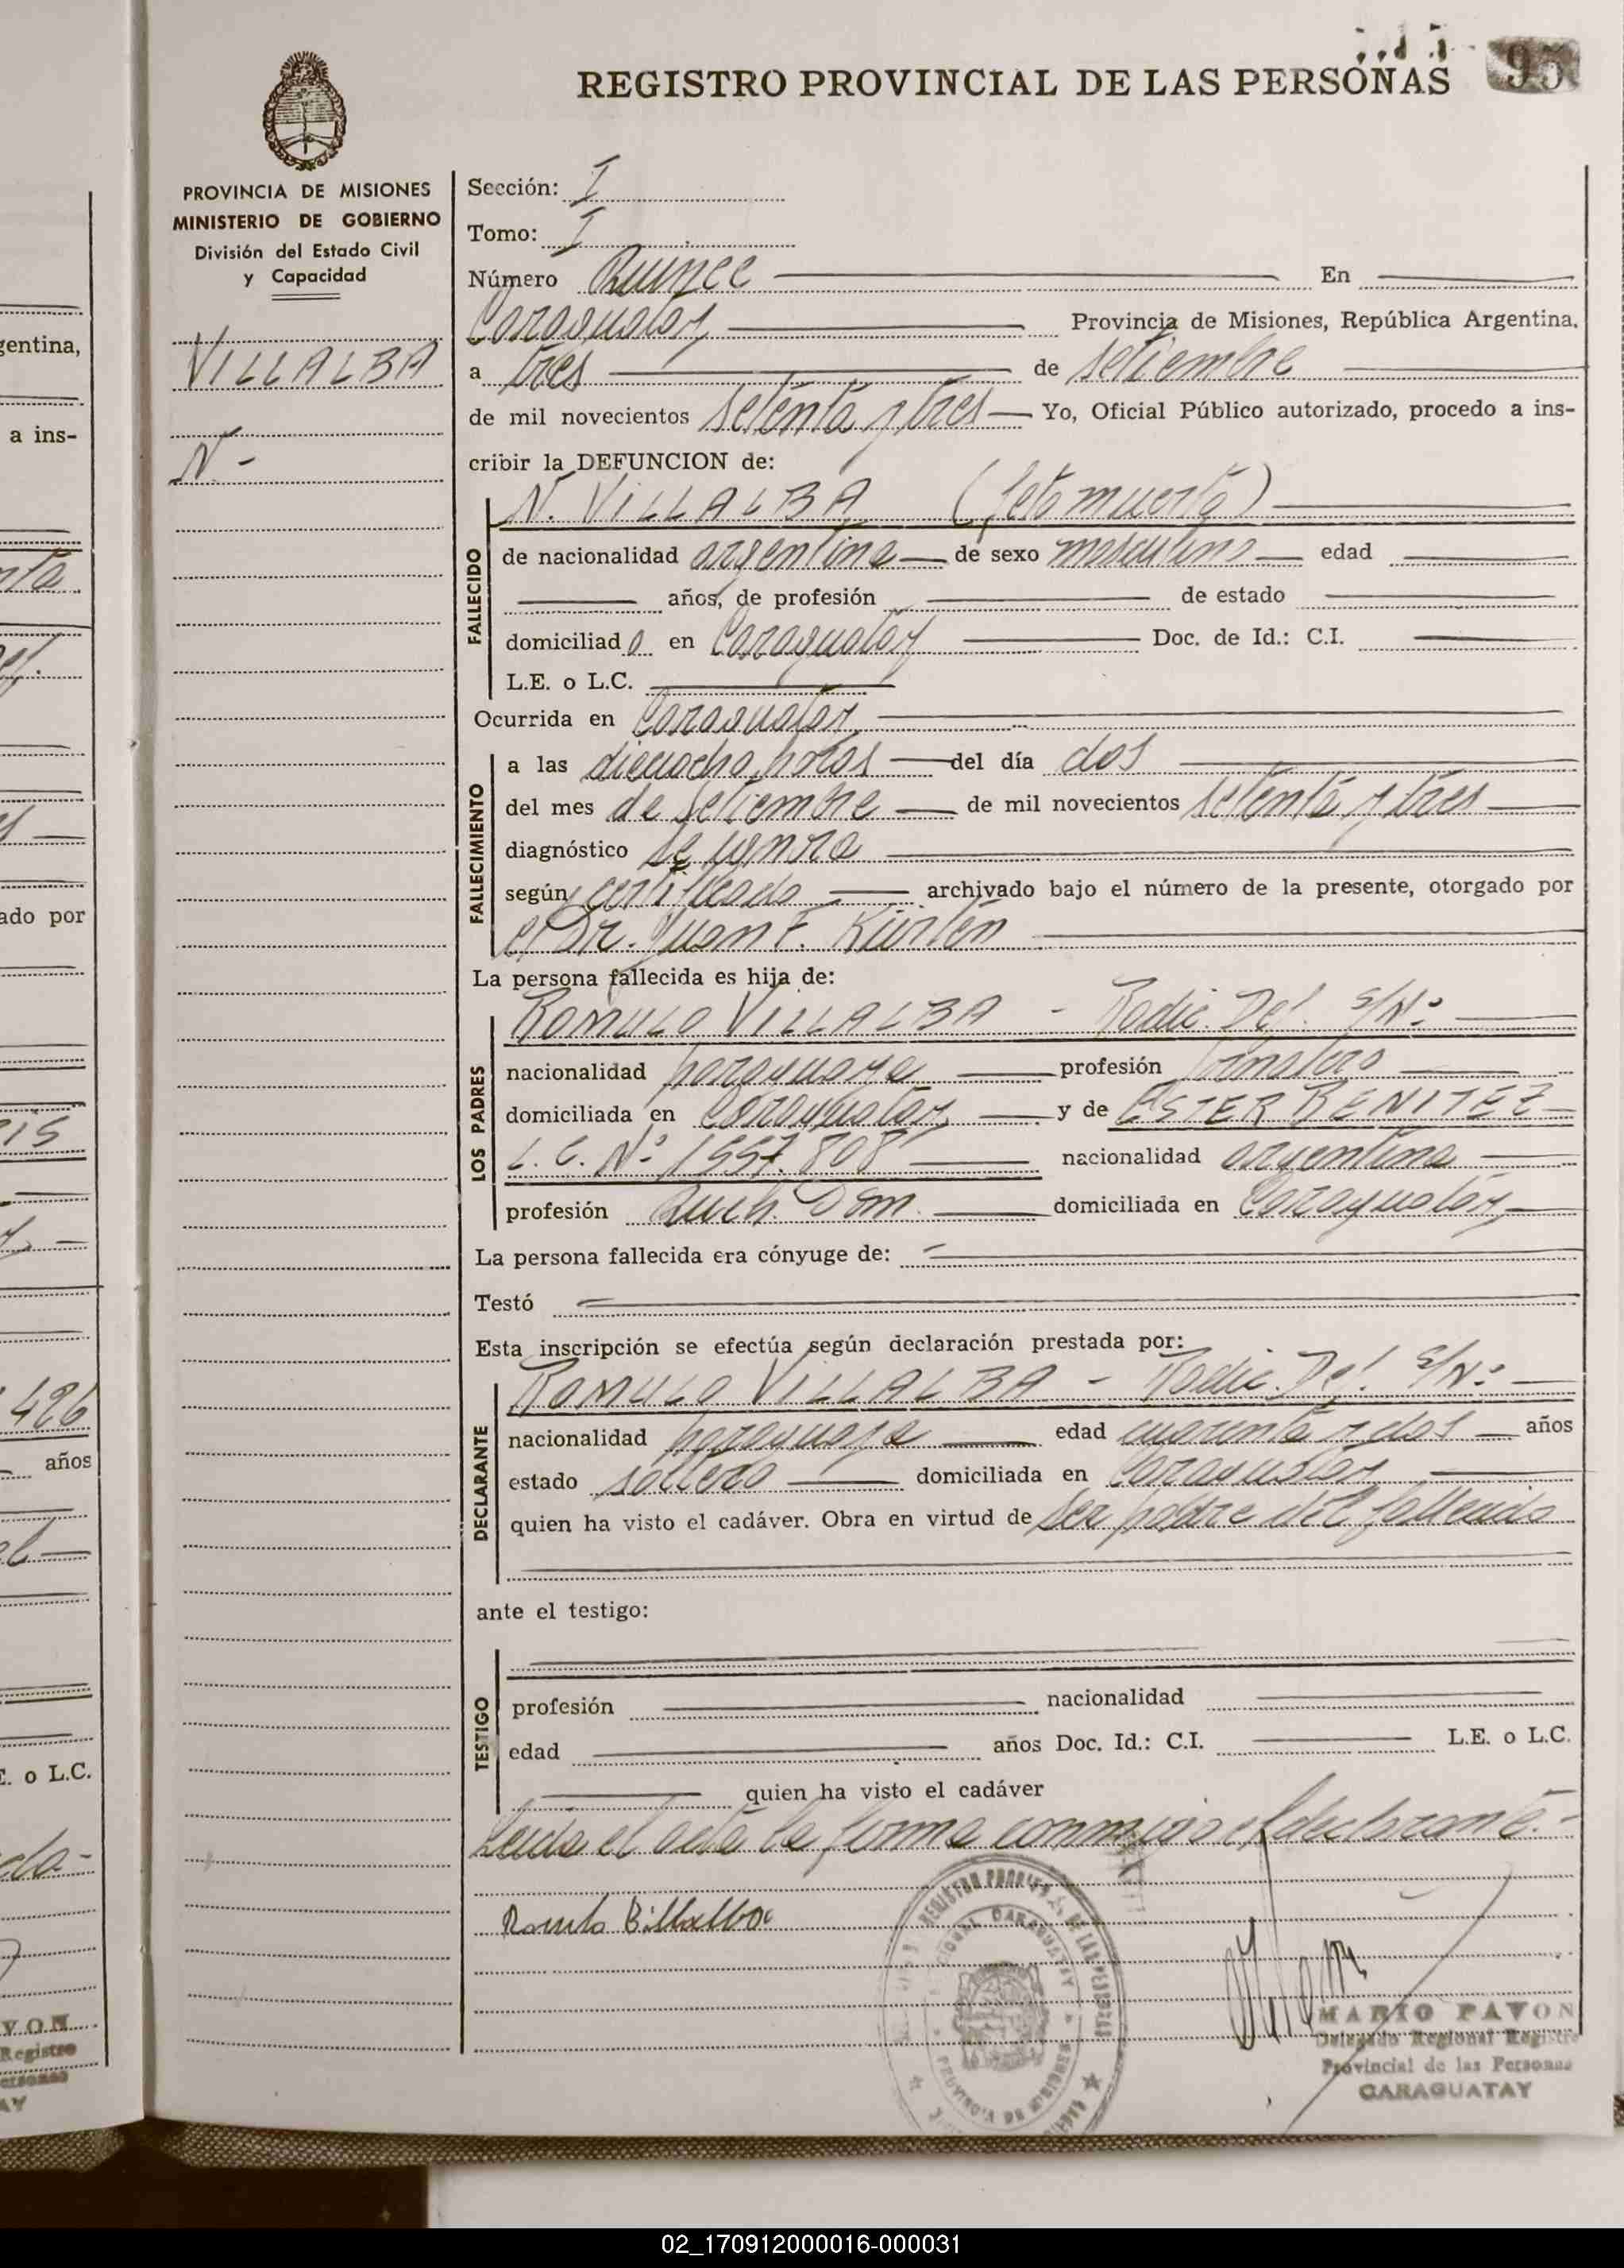 REGISTRO PROVINCIAL DE LAS PERSONAS 95
PROVINCIA DE MISIONES
MINISTERIO DE GOBIERNO
División del Estado Civil
y Capacidad
VILLALBA
N -
Sección: I
Tomo: I
Número Quince En
Caraguatay Provincia de Misiones, República Argentina,
a tres de setiembre
de mil novecientos setenta y tres Yo, Oficial Público autorizado, procedo a ins-
cribir la DEFUNCION de:
N. VILLALBA (feto muerto)
FALLECIDO
de nacionalidad argentina de sexo masculino edad
años, de profesión de estado
domiciliado en Caraguatay Doc. de Id.: C.I.
L.E. o L.C.
Ocurrida en Caraguatay
FALLECIMIENTO
a las dieciocho horas del día dos
del mes de setiembre de mil novecientos setenta y tres
diagnóstico se ignora
según certificado archivado bajo el número de la presente, otorgado por
el Dr. Juan F.
La persona fallecida es hija de:
ROMULO VILLALBA - Radic. Def. S/Nº
LOS PADRES
nacionalidad paraguaya profesión
domiciliada en Caraguatay y de ESTER BENITEZ
L.C. Nº 1557.808 nacionalidad argentina
profesión Queh. Dom. domiciliada en Caraguatay
La persona fallecida era cónyuge de:
Testó
Esta inscripción se efectúa según declaración prestada por:
ROMULO VILLALBA - Radic. Def. S/Nº
DECLARANTE
nacionalidad paraguaya edad cuarenta y dos años
estado soltero domiciliada en Caraguatay
quien ha visto el cadáver. Obra en virtud de ser padre del fallecido
ante el testigo:
TESTIGO
profesión nacionalidad
edad años Doc. Id.: C.I. L.E. o L.C.
quien ha visto el cadáver
Leída el acta la firma conmigo el declarante.-
Romulo Billalba
MARIO PAVON
Delegado Regional Registro
Provincial de las Personas
CARAGUATAY
02_170912000016-000031